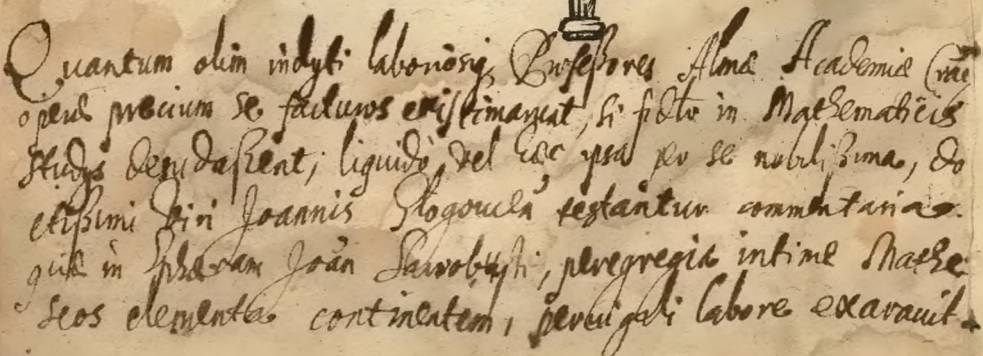 Quantum olim inclyti laboriosiq; Professores Almæ Academiæ
operæ precium se facturos existimarint, si in Mathematicis
studijs desudassent, liquidò, vel hæc ipsa per se nobilissima, do
ctissimi Viri Joannis Glogouien testantur commentaria.
quæ in Sphæram Joan Sacrobusti, peregregia intimè Mathe
seos elementa continentem, peruigili labore exarauit.